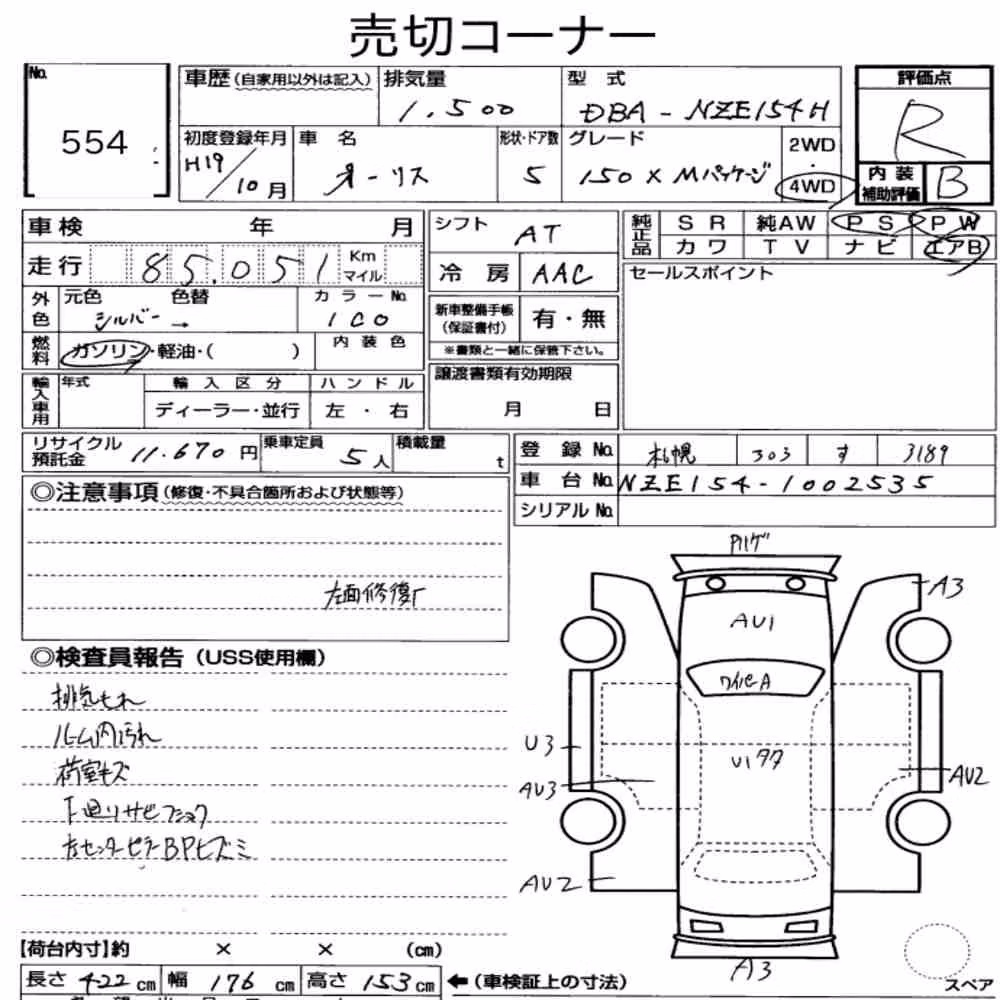 売切コーナー
No.
554
車歴(自家用以外は記入)
排気量
1.500
型 式
DBA - NZE154H
評価点
R
初度登録年月
H19/10月
車 名
オーリス
形状・ドア数
5
グレード
150X Mパッケージ
2WD
・
4WD
内装
補助評価
B
車検 年 月
シフト
AT
純正品
SR 純AW PS PW
カワ TV ナビ エアB
走行
85.051
Km
マイル
冷房
AAC
セールスポイント
外色
元色 色替
シルバー →
カラーNo.
1C0
新車整備手帳
(保証書付)
有・無
※書類と一緒に保管下さい。
燃料
ガソリン・軽油・( )
内装色
譲渡書類有効期限
月 日
輸入車用
年式
輸入区分
ハンドル
ディーラー・並行
左・右
リサイクル
預託金
11.670円
乗車定員
5人
積載量
t
登録No.
札幌 303 す 3189
車台No.
NZE154-1002535
シリアルNo.
◎注意事項(修復・不具合箇所および状態等)
左面修復
◎検査員報告(USS使用欄)
排気もれ
ルーム内汚れ
荷室キズ
下廻りサビフショク
左センターピラーBPヒズミ
A3
AU1
ワイパーA
U3
U1タタ
AU3
AU2
AU2
A3
スペア
【荷台内寸】約 × × (cm)
長さ 422cm 幅 176cm 高さ 153cm
←(車検証上の寸法)